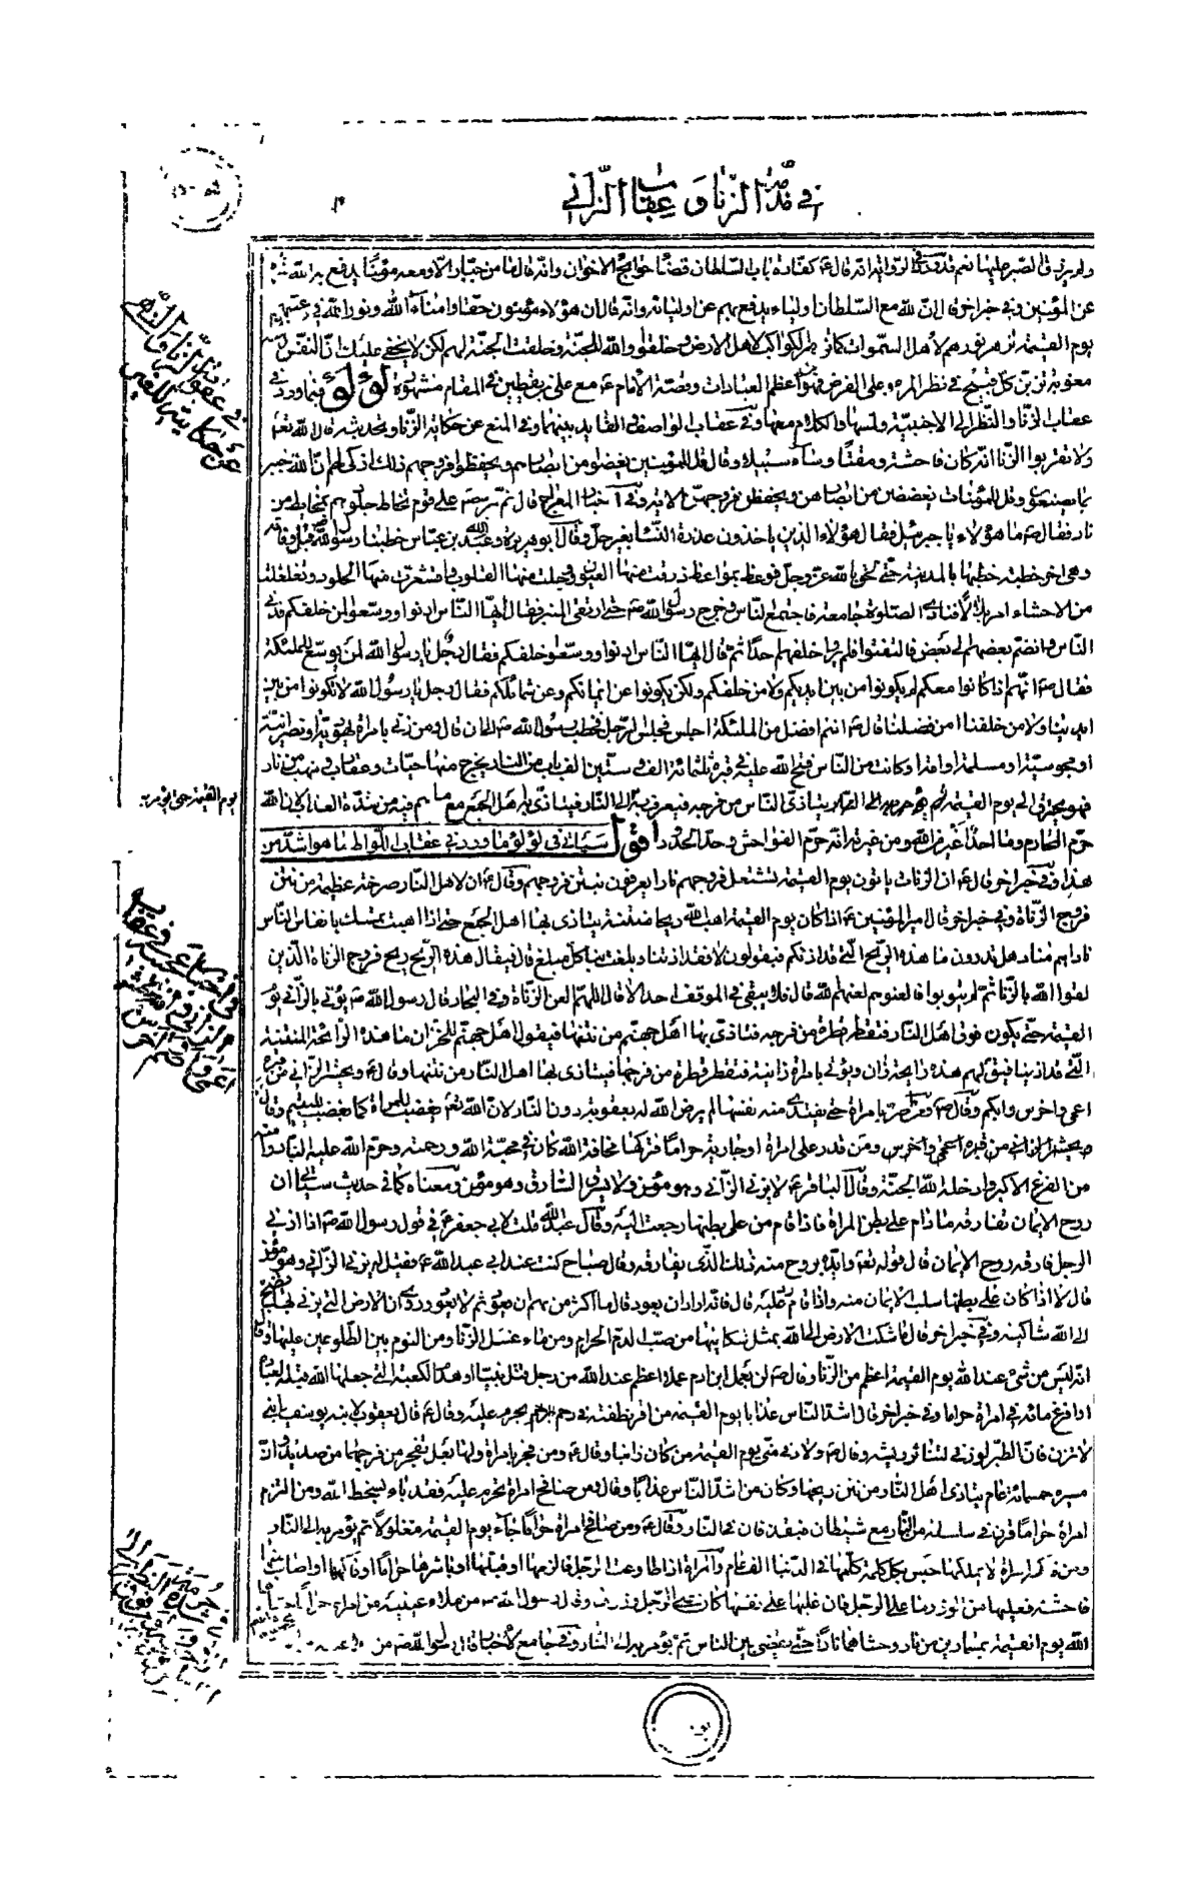 في مذمة الزنا وعقاب الزاني
عليها نعم قد ورد في الرواية انه قال ع كفارة باب السلطان قضاء حوايج الاخوان وانه قال ما من جبار الا ومعه مؤمن يدفع به الله
عن المؤمنين وفي خبر اخر قال ان لله مع السلطان اولياء يدفع بهم عن اوليائه وانه قال ان هؤلاء مؤمنون حقا وامناء الله ونور الله في
يوم القيمة نورهم لاهل السموات كما الكواكب لاهل الارض خلقوا والله للجنة وخلقت الجنة لهم لكن لا يخفى عليك ان النفس
كل قبيح في نظر المرء وعلى الفرض اعظم العبادات وقصة الامام ع مع علي بن يقطين في المقام مشهورة لؤلؤ فيما ورد في
عقاب الزنا والنظر الى الاجنبية ولمسها والكلام معها وفي عقاب الواصف القايد بينهما وفي المنع عن حكاية الزنا وتحديثه قال الله تعالى
ولا تقربوا الزنا انه كان فاحشة ومقتا وساء سبيلا وقال قل للمؤمنين يغضوا من ابصارهم ويحفظوا فروجهم ذلك ازكى لهم ان الله خبير
بما يصنعون وقل للمؤمنات يغضضن من ابصارهن ويحفظن فروجهن الاية وفي اخبار المعراج قال ثم مر ص على قوم تخاط جلودهم بمخايط من
نار فقال ص ما هؤلاء يا جبرئيل فقال هؤلاء الذين ياخذون عذرة النساء بغير حل وقال ابو هريرة وعبد الله بن عباس خطبنا رسول الله قبل وفاته
وهي اخر خطبة خطبها بالمدينة حتى لحق بالله عز وجل فوعظ بمواعظ ذرفت منها العيون ووجلت منها القلوب واقشعرت منها الجلود وتقلقلت
منها الاحشاء امر بلالا فنادى الصلوة جامعة فاجتمع الناس وخرج رسول الله ص حتى ارتقى المنبر فقال ايها الناس ادنوا ووسعوا لمن خلفكم فدنى
الناس وانضم بعضهم الى بعض فالتفتوا فلم يروا خلفهم احدا ثم قال ايها الناس ادنوا ووسعوا لمن خلفكم فقال رجل يا رسول الله لمن نوسع للملئكة
فقال ص انهم اذا كانوا معكم لم يكونوا من بين ايديكم ولا من خلفكم ولكن يكونوا عن ايمانكم وعن شمائلكم فقال رجل يا رسول الله لا تكونوا من بين
ايدينا ولا من خلفنا امن فضلنا قال ص انتم افضل من الملئكة اجلس فجلس الرجل فخطب رسول الله ص الى ان قال ومن زنى بامراة يهودية او نصرانية
او مجوسية او مسلمة او امة وكانت من الناس فتح الله عليه في قبره ثلثمائة الف وستين الف باب من النار يخرج منها حيات وعقاب وشهب من نار
فهو يحترق الى يوم القيمة يتاذى الناس من فرجه فيعرف به الى النار فيتاذى به اهل الجمع مع ما هم فيه من شدة العذاب لان الله
حرم المحارم وما احد اغير من الله ومن غيرته انه حرم الفواحش وحد الحدود اقول سياتي في لؤلؤ ما ورد في عقاب اللواط ما هو اشد من
هذا وفي خبر اخر قال ص ان الزناة ياتون يوم القيمة تشتعل فروجهم نارا يعرفون بنتن فروجهم وقال ص ان لاهل النار صرخة عظيمة من نتن
فروج الزناة وفي خبر اخر قال امير المؤمنين ع اذا كان يوم القيمة اهب الله ريحا منتنة يتاذى بها اهل الجمع حتى اذا اهبت تمسك بانفاس الناس
ناداهم مناد هل تدرون ما هذه الريح التي قد اذتكم فيقولون لا فقد اذتنا وبلغت منا كل مبلغ قال فيقال هذه الريح ريح فروج الزناة الذين
لقوا الله بالزنا ثم لم يتوبوا فالعنوهم لعنهم الله قال فلا يبقى في الموقف احد الا قال اللهم العن الزناة وفي البحار قال رسول الله ص يؤتى بالزاني يوم
القيمة حتى يكون فوق اهل النار فتقطر قطرة من فرجه فيتاذى بها اهل جهنم من نتنها فيقول اهل جهنم للخزان ما هذه الرائحة المنتنة
التي قد اذتنا فيقال لهم هذه رائحة زان ويؤتى بامراة زانية فتقطر قطرة من فرجها فيتاذى بها اهل النار من نتنها وقال ع ويحشر الزاني من قبره
اعمى واخرس وابكم وقال ص بامراة حتى تفتدي منه نفسها لم يرض الله له بعقوبة دون النار لان الله تعالى يغضب للمراة كما يغضب لليتيم وقال
يحشر الزاني من قبره اعمى واخرس ومن قدر على امراة او جارية حراما فتركها مخافة الله كان في محبة الله ورحمته وحرم الله عليه النار وامنه
من الفزع الاكبر وادخله الله الجنة وقال الباقر ع لا يزني الزاني وهو مؤمن ولا يسرق السارق وهو مؤمن ومعناه كما في حديث سياتي ان
روح الايمان تفارقه ما دام على بطن المراة فاذا قام من على بطنها رجعت اليه وقال عبد الله قلت لابي جعفر ع في قول رسول الله ص اذا زنى
الرجل فارقه روح الايمان قال قوله تعالى وايدهم بروح منه ذلك الذي يفارقه وقال صباح كنت عند ابي عبد الله ع فقيل له يزني الزاني وهو مؤمن
قال لا اذا كان على بطنها سلب الايمان منه واذا قام رد عليه قال فانه اراد ان يعود قال ما اكثر من يهم ان يعود ثم لا يعود وروي ان الارض التي يزنى عليها تضج
الى الله شاكية وفي خبر اخر قال ما شكت الارض الى الله بمثل شكايتها من صب الدم الحرام ومن ماء غسل الزنا ومن النوم بين الطلوعين عليها وقال
انه ليس من شيء عند الله يوم القيمة اعظم من الزنا وقال ص لن يعمل ابن ادم عملا اعظم عند الله من رجل قتل نبيا او هدم الكعبة التي جعلها الله قبلة لعباده
او افرغ مائه في امراة حراما وفي خبر اخر قال اشد الناس عذابا يوم القيمة من اقر نطفته في رحم يحرم عليه وقال ع قال يعقوب لابنه يوسف يا بني
لا تزن فان الطير لو زنى لتناثر ريشه وقال ص ولاد في متى يوم القيمة من كان زانيا وقال ع ومن فجر بامراة ولها بعل تفجر من فرجهما من صديد واد
مسيرة خمسمائة عام يتاذى اهل النار من نتن ريحهما وكان من اشد الناس عذابا وقال ومن صافح امراة تحرم عليه فقد باء بسخط الله ومن التزم
امراة حراما قرن في سلسلة من النار مع شيطان فيقذفان في النار وقال ع ومن صافح امراة حراما جاء يوم القيمة مغلولا ثم يؤمر به الى النار
ومن امراة لا يملكها حبس بكل كلمة كلمها في الدنيا الف عام والمراة اذا طاوعت الرجل فالتزمها او قبلها او باشرها حراما او فاكهها او اصاب منها
فاحشة فعليها من الوزر ما على الرجل فان غلبها على نفسها كان على الرجل وزره وقال رسول الله ص من ملاء عينيه من امراة حراما
الله يوم القيمة بمسامير من نار وحشاهما نارا حتى يقضى بين الناس ثم يؤمر به الى النار وفي جامع الاخبار قال رسول الله ص من
في عقوبة الزنا والنظر
عن حكايته للغير
يوم القيمة حتى يؤمر به